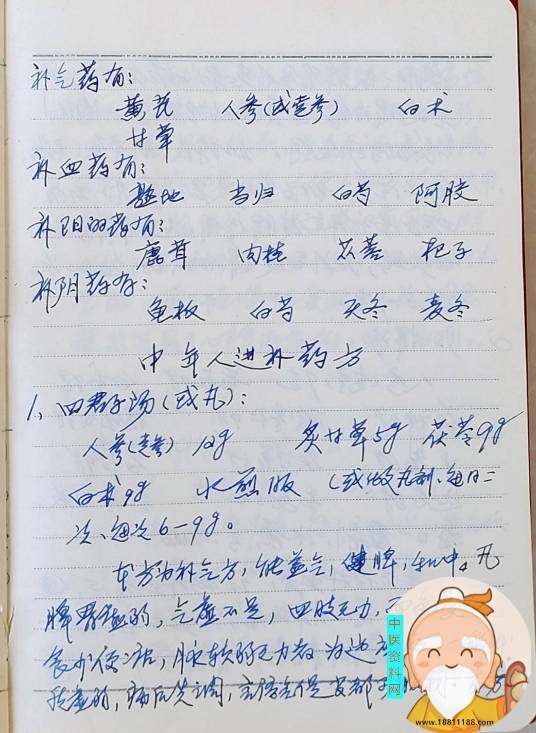 补气药有:
黄芪 人参(或党参) 白术
甘草
补血药有:
熟地 当归 白芍 阿胶
补阳的药有:
鹿茸 肉桂 苁蓉 杞子
补阴药有:
龟板 白芍 天冬 麦冬
中年人进补药方
1、四君子汤(或丸):
人参(党参) 12g 炙甘草5g 茯苓9g
白术9g 水煎服 (或做丸剂、每日二
次、每次6-9g。
本方为补气方,能益气,健脾,和中。凡
脾胃虚弱,气虚不足,四肢乏力,
食少便溏,脉软弱乏力者 为
病后失调,
中医资料网
www.18811188.com